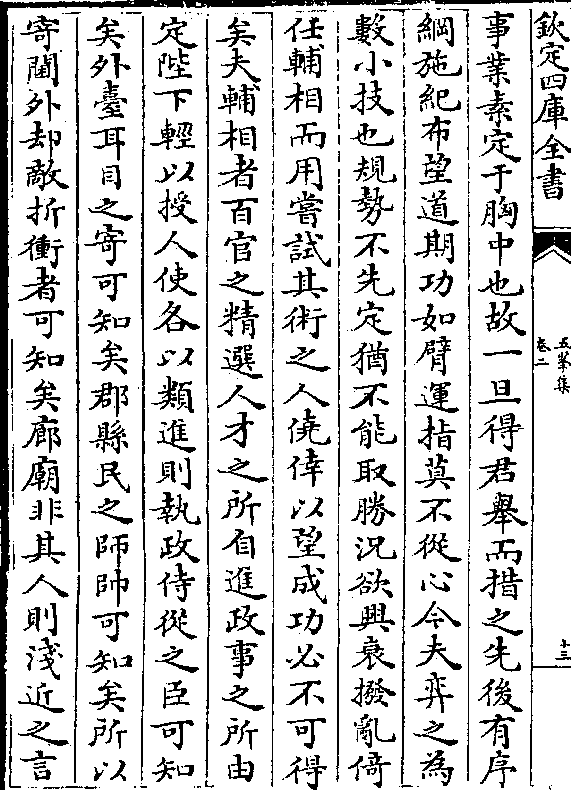 欽定四庫全書
五峯集
卷二
十三
事業素定于胸中也故一旦得君舉而措之先後有序
綱施紀布望道期功如臂運指莫不從心今夫弈之為
數小技也規勢不先定猶不能取勝況欲興衰撥亂倚
任輔相而用嘗試其術之人僥倖以望成功必不可得
矣夫輔相者百官之精選人才之所自進政事之所由
定陛下輕以授人使各以類進則執政侍從之臣可知
矣外臺耳目之寄可知矣郡縣民之師帥可知矣所以
寄閫外却敵折衝者可知矣廊廟非其人則淺近之言